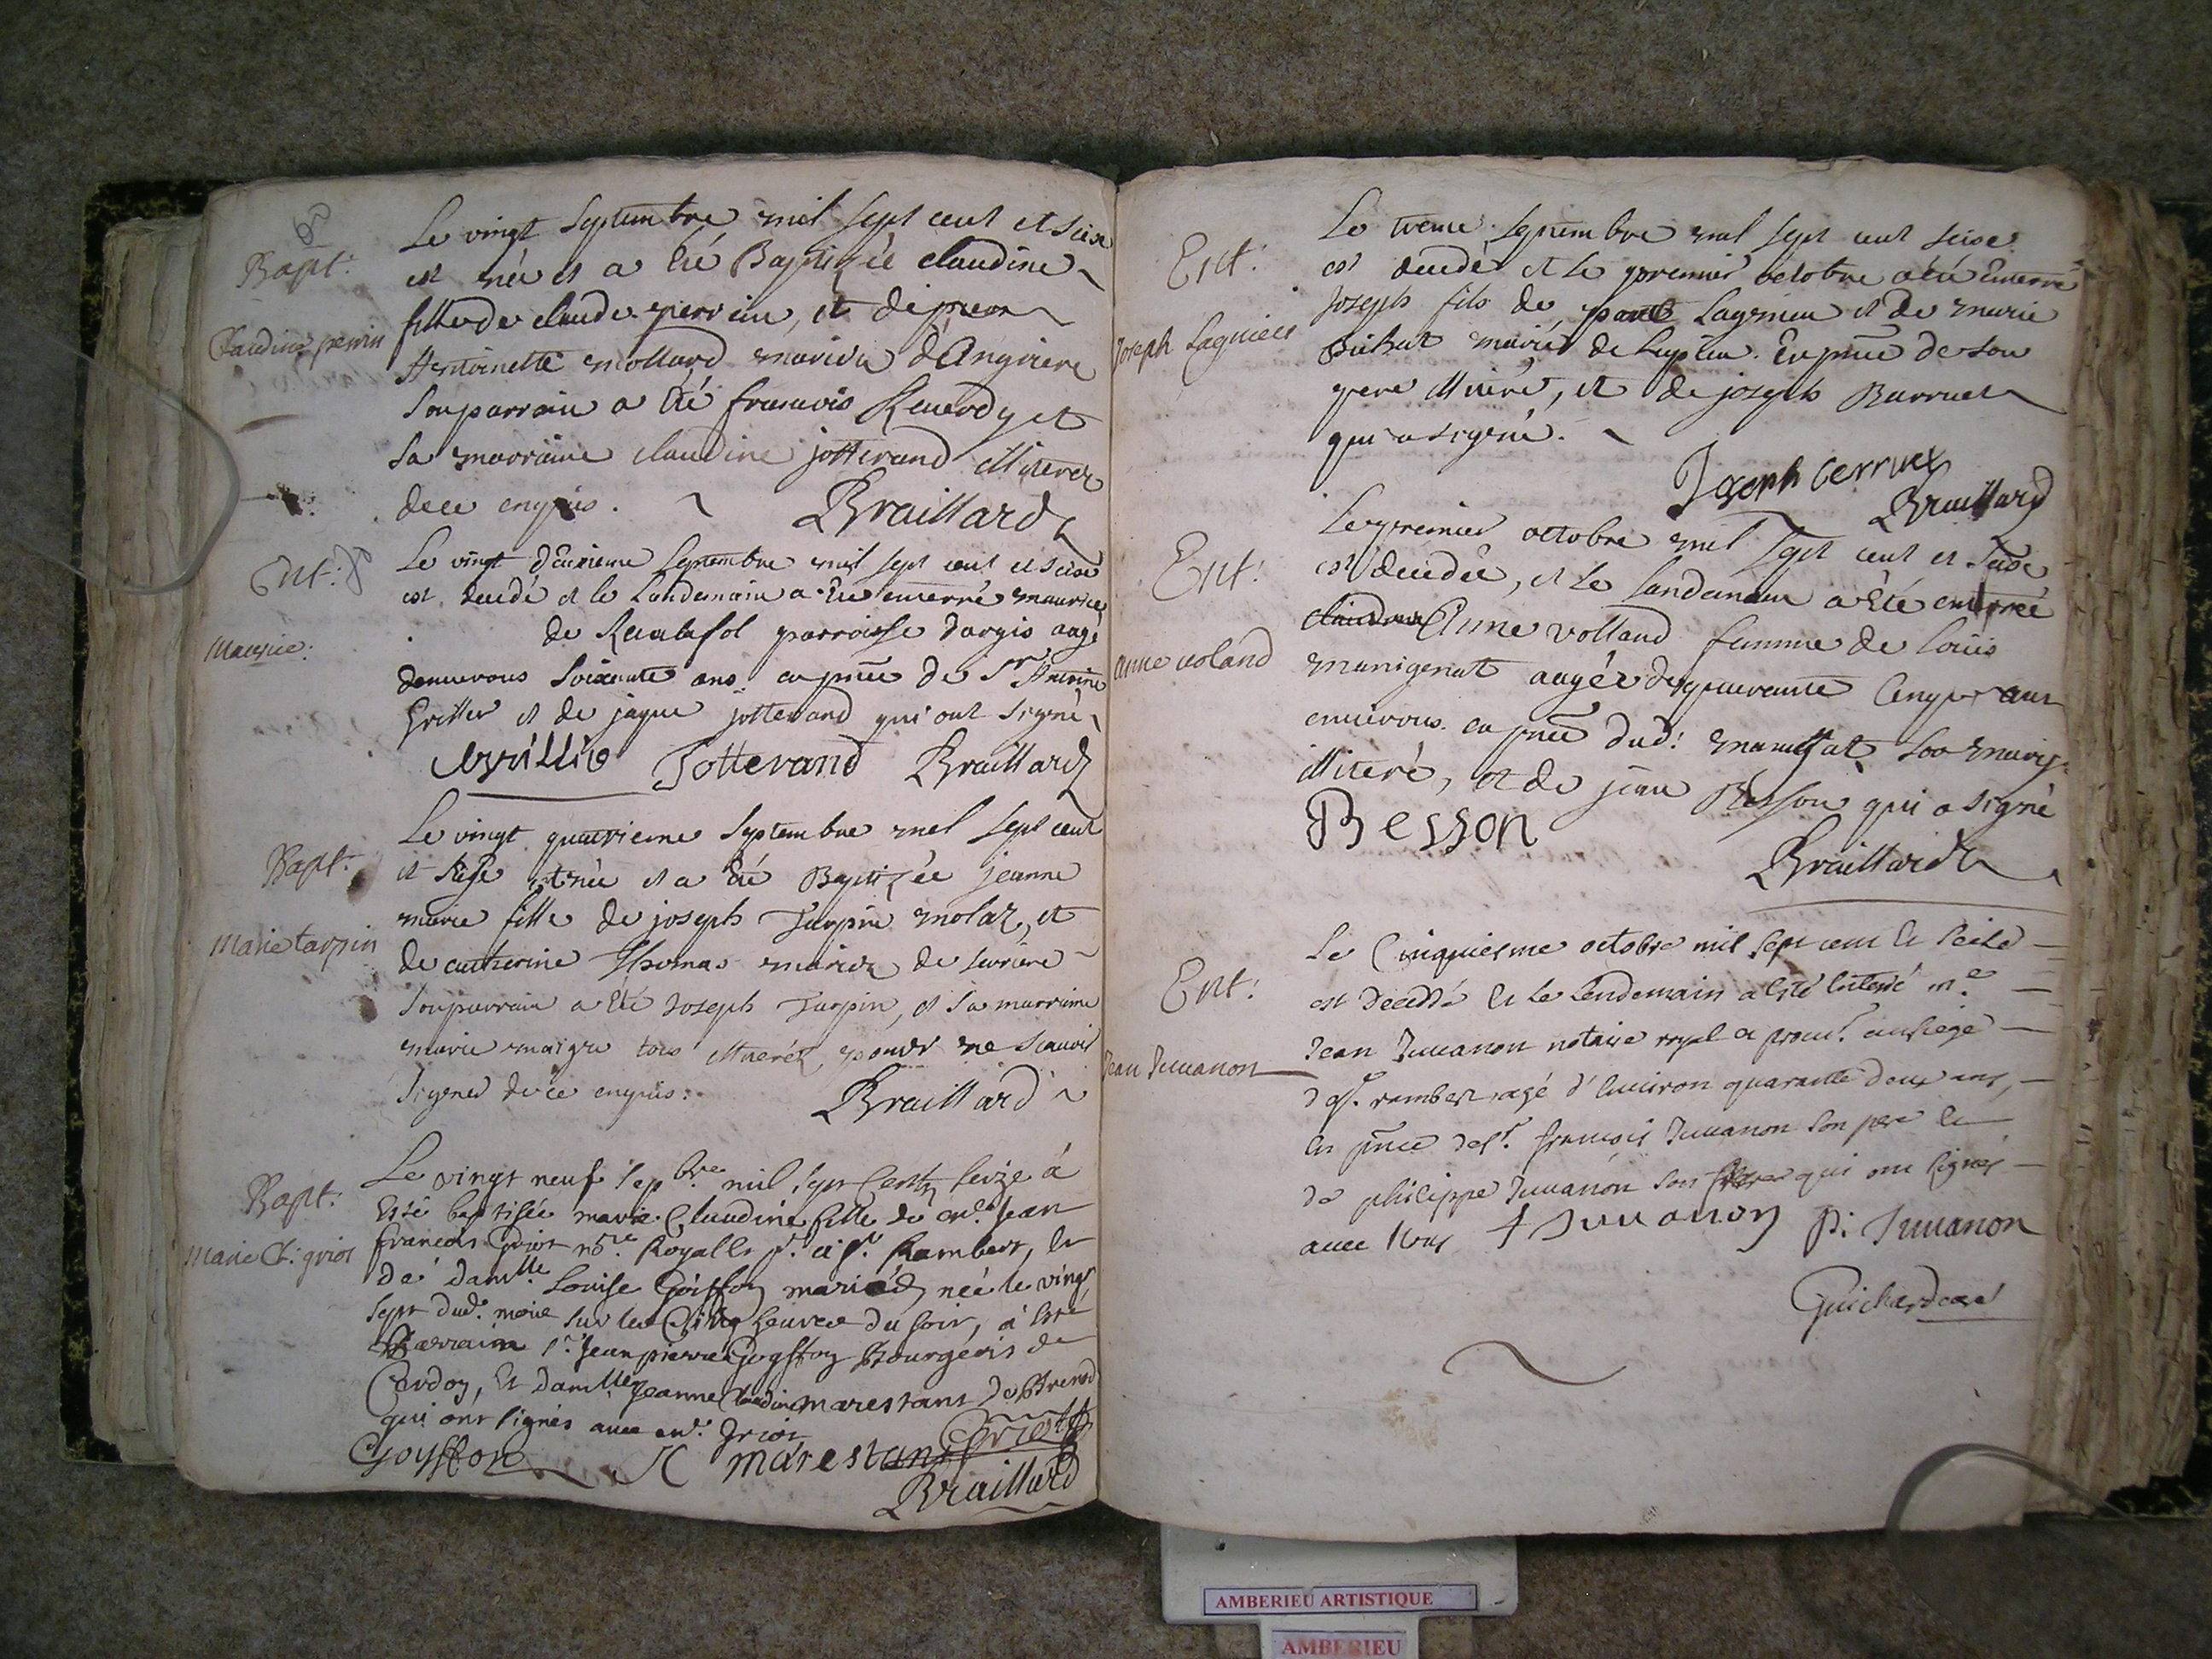 Bapt:
Claudine perrin
Le vingt Septembre mil sept cent et seise
est née et a été Baptizée claudine
fille de claude perrin, et de
Antoinette mollard mariés d'Angriere
son parrain a été francois Reverdy et
sa marraine claudine jotterand illiterez
de ce enquis.
Braillard
Ent:
Maurice:
Le vingt deuxieme septembre mil sept cent et seise
est decedé et le Landemain a été enterré maurice
de parroisse dargis aagé
denvirons soixante ans en pnce de Sr Antoine
Grillier et de jaque jotterand qui ont signé
Jotterand Braillard
Bapt:
Marie tarpin
Le vingt quatrieme Septembre mil sept cent
et seise est née et a été Baptizée jeanne
marie fille de joseph Tarpin molaz, et
de catherine Thomas mariez de
son parrain a été Joseph Tarpin, et sa marraine
marie maigre tous illiterez pour ne scavoir
signer de ce enquis.
Braillard
Bapt:
Marie Cl: griot
Le vingt neuf sepbre mil sept Cents seize à
esté baptisée marie Claudine fille de me Jean
francois Griot nore Royall et pr. à St Rambert, et
de damlle Louise Goiffon mariéz née le vingt
sept dud. mois sur les Cinq heures du soir, à esté
Parrain Sr Jean pierre Goyffon Bourgeois de
Cerdon, et damlle Jeanne Claudine marestans
qui ont signés avec md. Griot
Goyffon JC marestans Griot
Braillard
Ent:
Joseph Lagnieu
Le trente septembre mil sept cent seise
est decedé et le premier octobre a été Enterré
Joseph fils de Lagnieu et de marie
mariés de En pnce de son
pere illiteré, et de joseph Barruel
qui a signé.
Joseph
Braillard
Ent:
anne voland
Le premier octobre mil sept cent et seise
est decedée, et le landemain a été enterrée
Anne volland femme de Louis
manigenat aagée de quarante Cinq ans
environs en pnce dud: son mary
illiteré, et de jean Besson qui a signé
Besson
Braillard
Ent:
Jean Juuanon
Le Cinquiesme octobre mil sept cent et seize
est decedé et le lendemain a esté enterré me
Jean Juuanon notaire royal et procr. au siege
de st. rambert, agé d'environ quarante deux ans,
en pnce de sr. francois Juuanon son pere et
de philippe Juuanon son frere qui ont signés
avec nous f Juuanon P: Juuanon
Guichard curé
AMBERIEU ARTISTIQUE
AMBERIEU